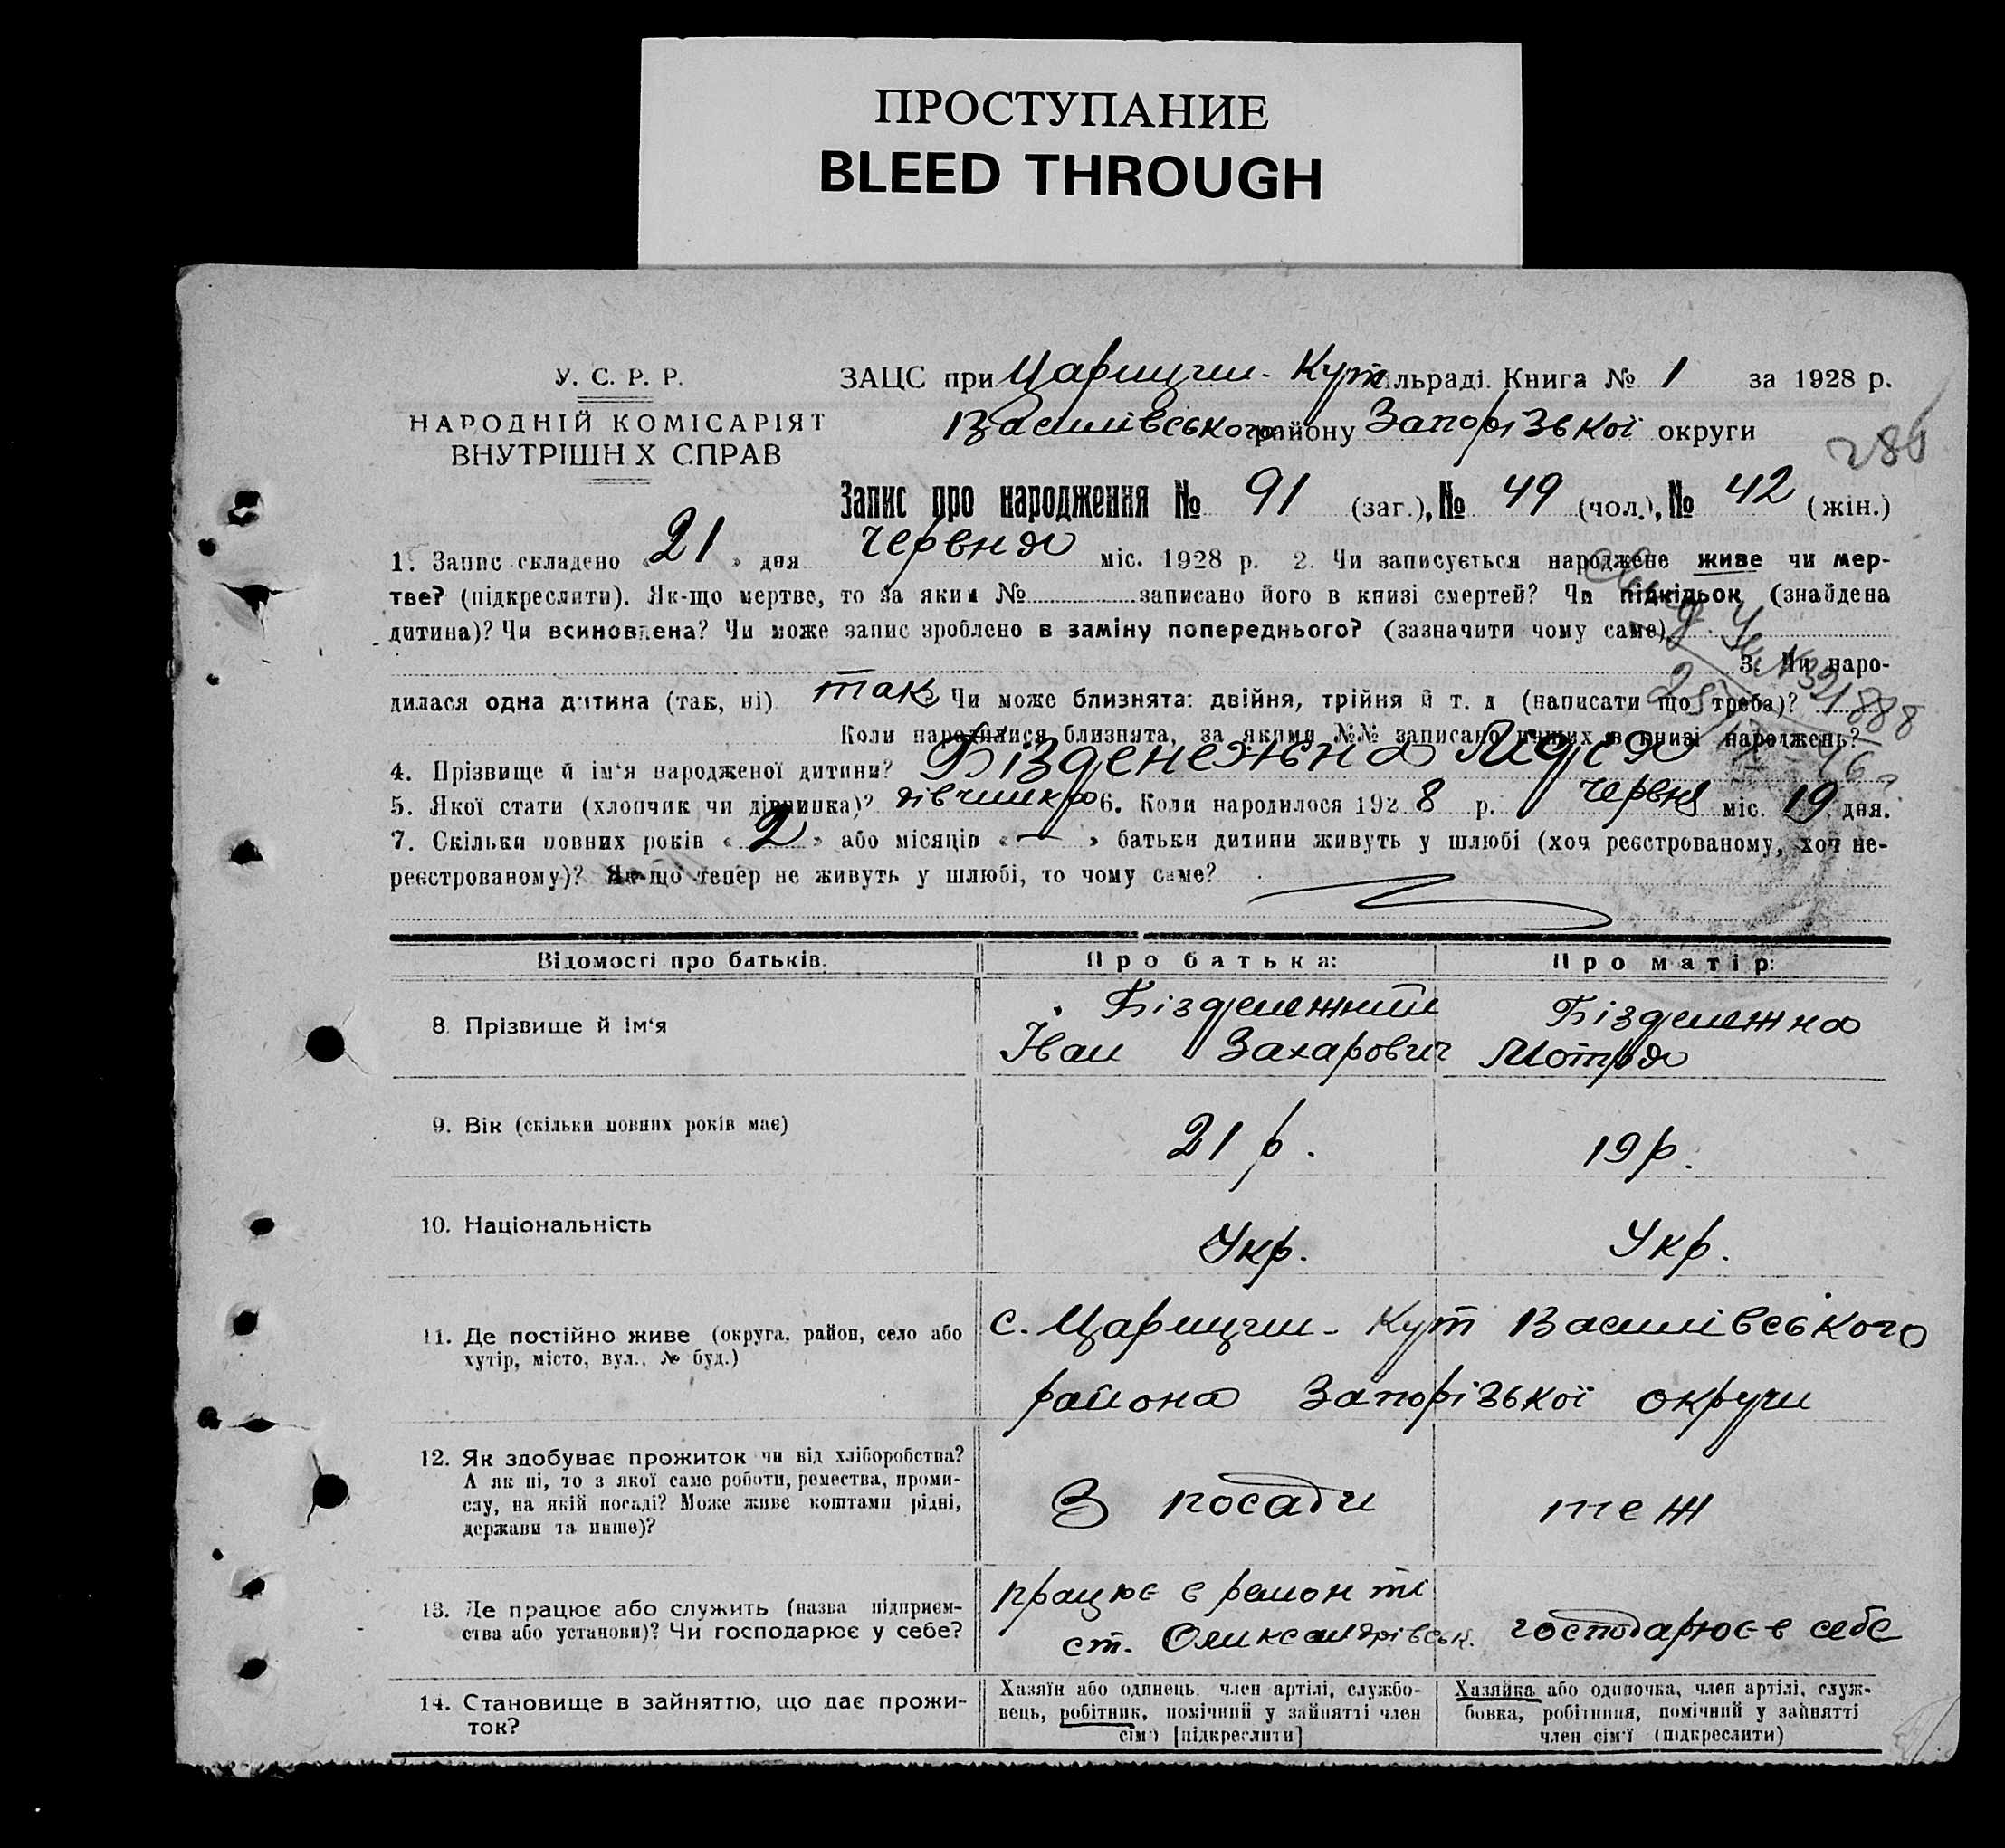 ПРОСТУПАНИЕ
BLEED THROUGH
У. С. Р. Р.
НАРОДНІЙ КОМІСАРІЯТ
ВНУТРІШН Х СПРАВ
ЗАЦС при Царицин-Кут льраді. Книга № 1 за 1928 р.
Василівського району Запорізької округи
Запис про народження № 91 (заг.), № 49 (чол.), № 42 (жін.)
1. Запис складено «21» дня червня міс. 1928 р. 2. Чи записується народжене живе чи мер-
тве? (підкреслити). Як-що мертве, то за яким № записано його в книзі смертей? Чи підкідьок (знайдена
дитина)? Чи всиновлена? Чи може запис зроблено в заміну попереднього? (зазначити чому саме)
3. Чи наро-
дилася одна дитина (так, ні) так Чи може близнята: двійня, трійня й т. д (написати що треба)?
Коли народилися близнята, за якими №№ записано инших в книзі народжень?
4. Прізвище й ім'я народженої дитини? Бізденежна Лідія
5. Якої стати (хлопчик чи дівчинка)? дівчинка 6. Коли народилося 1928 р. червня міс. 19 дня.
7. Скільки повних років «2» або місяців «—» батьки дитини живуть у шлюбі (хоч реєстрованому, хоч не-
реєстрованому)? Як-що тепер не живуть у шлюбі, то чому саме?
Відомості про батьків. Про батька: Про матір:
8. Прізвище й ім'я Бізденежний Іван Захарович Бізденежна Мотря
9. Вік (скільки повних років має) 21 р. 19 р.
10. Національність Укр. Укр.
11. Де постійно живе (округа, район, село або с. Царицин-Кут Василівського
хутір, місто, вул., № буд.) района Запорізької округи
12. Як здобуває прожиток чи від хліборобства?
А як ні, то з якої саме роботи, ремества, проми-
слу, на якій посаді? Може живе коштами рідні,
держави та инше)? З посади теж
13. Де працює або служить (назва підприєм- працює в ремонті
ства або установи)? Чи господарює у себе? ст. Олександрівськ. господарює в себе
14. Становище в зайняттю, що дає прожи-
ток?
Хазяїн або одинець, член артілі, службо-
вець, робітник, помічний у зайнятті член
сім'ї [підкреслити]
Хазяйка або одиночка, член артілі, служ-
бовка, робітниця, помічний у зайнятті
член сім'ї (підкреслити)